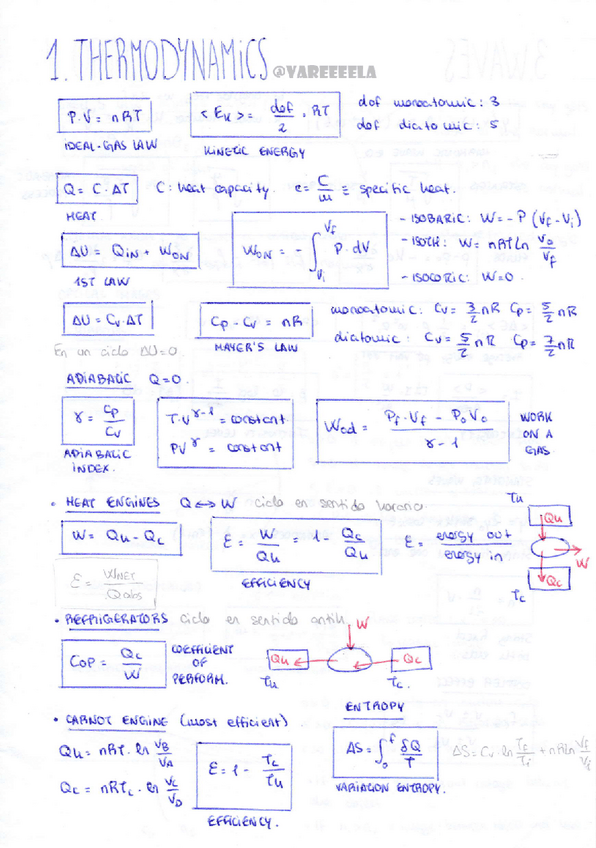 1. THERMODYNAMICS @VAREEEELA
P·V = nRT
IDEAL-GAS LAW
<Ek> = dof/2 · RT
KINETIC ENERGY
dof monoatomic: 3
dof diatomic: 5
Q = C·ΔT C: heat capacity. c = C/m ≡ specific heat.
HEAT
ΔU = QIN + WON
1ST LAW
WON = - ∫ Vi Vf P·dV
- ISOBARIC: W = -P (Vf - Vi)
- ISOTH: W = nRT Ln Vo/Vf
- ISOCORIC: W=0.
ΔU = Cv·ΔT
En un ciclo ΔU=0.
Cp - Cv = nR
MAYER'S LAW
monoatomic: Cv = 3/2 nR Cp = 5/2 nR
diatomic: Cv = 5/2 nR Cp = 7/2 nR
ADIABATIC Q=0.
γ = Cp/Cv
ADIABATIC
INDEX.
T·V^γ-1 = constant.
PV^γ = constant
Wad = Pf·Vf - PoVo / γ-1
WORK
ON A
GAS
• HEAT ENGINES Q ↔ W ciclo en sentido horario.
W = QH - QC
ε = W/QH = 1 - QC/QH
EFFICIENCY
ε = energy out / energy in
TH
QH
W
QC
TC
ε = WNET/Qabs
• REFRIGERATORS ciclo en sentido antih.
COP = QC/W
COEFFICIENT
OF
PERFORM.
W
QH
QC
TH
TC.
• CARNOT ENGINE (most efficient).
QH = nRT · ln VB/VA
QC = nRTC · ln VC/VD
ε = 1 - TC/TH
EFFICIENCY.
ENTROPY
ΔS = ∫ o f δQ/T
VARIATION ENTROPY.
ΔS = Cv · ln Tf/Ti + nR ln Vf/Vi